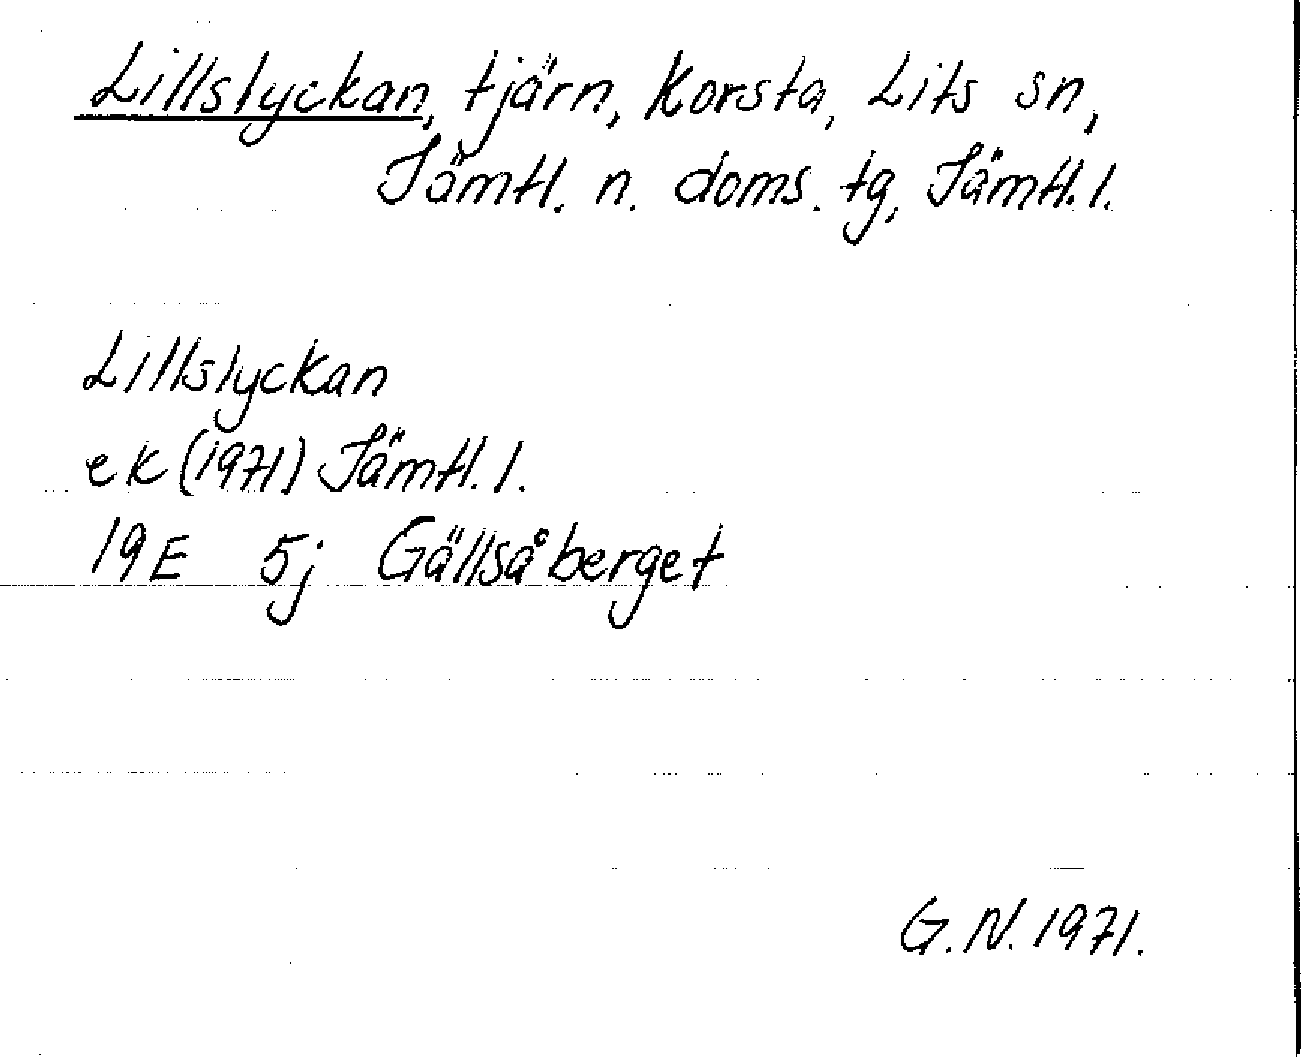 Lillslyckan, tjärn, Korsta, Lits sn,
Jämtl. n. doms. tg, Jämtl. l.
Lillslyckan
ek (1971) Jämtl. l.
19E 5j Gällsåberget
G. N. 1971.